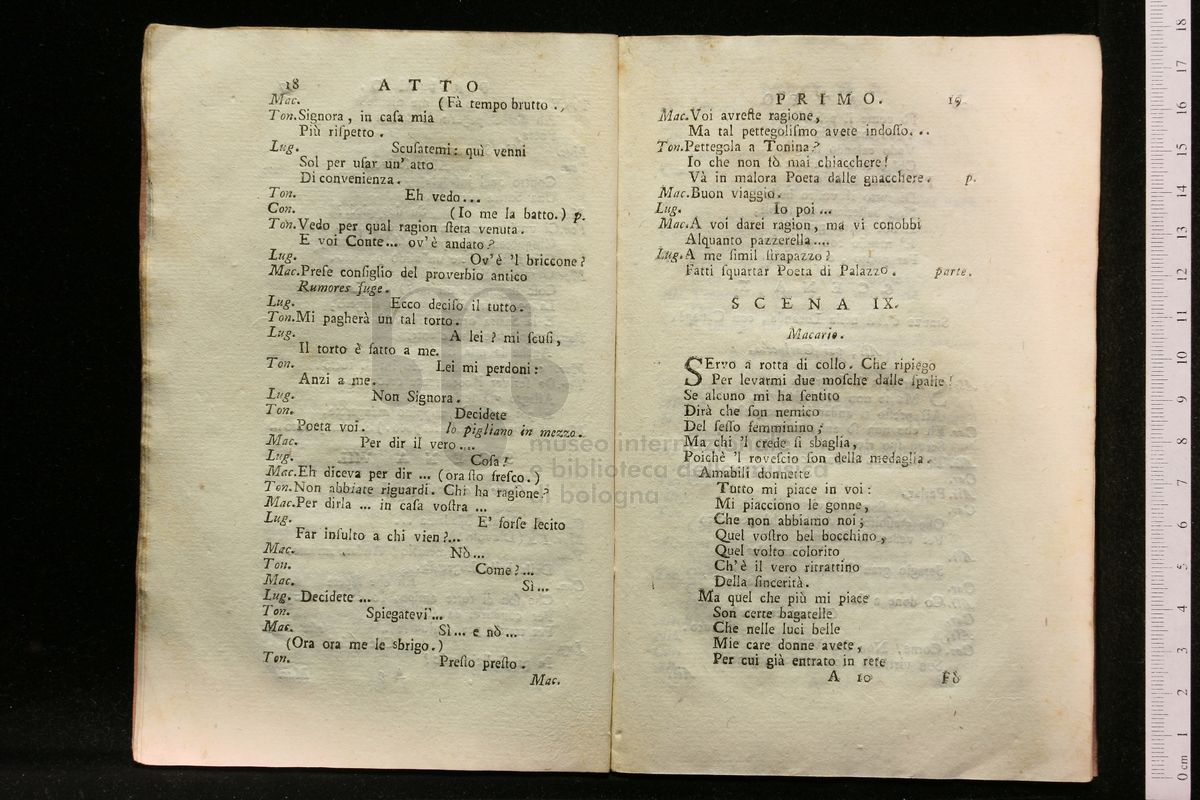 18 ATTO
Mac. (Fà tempo brutto .,
Ton.Signora, in caſa mia
Più riſpetto.
Lug. Scuſatemi: quì venni
Sol per uſar un' atto
Di convenienza.
Ton. Eh vedo...
Con. (Io me la batto.) p.
Ton.Vedo per qual ragion ſteta venuta.
E voi Conte... ov'è andato?
Lug. Ov'è 'l briccone?
Mac.Preſe conſiglio del proverbio antico
Rumores fuge.
Lug. Ecco deciſo il tutto.
Ton.Mi pagherà un tal torto.
Lug. A lei? mi ſcuſi,
Il torto è fatto a me.
Ton. Lei mi perdoni:
Anzi a me.
Lug. Non Signora.
Ton. Decidete
Poeta voi. lo pigliano in mezzo.
Mac. Per dir il vero....
Lug. Coſa!
Mac.Eh diceva per dir ... (ora ſto freſco.)
Ton.Non abbiate riguardi. Chi ha ragione?
Mac.Per dirla ... in caſa voſtra ...
Lug. E' forſe lecito
Far inſulto a chi vien?...
Mac. Nò...
Ton. Come?...
Mac. Sì...
Lug. Decidete ...
Ton. Spiegatevi'...
Mac. Sì... e nò...
(Ora ora me le sbrigo.)
Ton. Preſto preſto.
Mac.
PRIMO. 19
Mac.Voi avreſte ragione,
Ma tal pettegoliſmo avete indoſſo...
Ton.Pettegola a Tonina?
Io che non fò mai chiacchere!
Và in malora Poeta dalle gnacchere. p.
Mac.Buon viaggio.
Lug. Io poi...
Mac.A voi darei ragion, ma vi conobbi
Alquanto pazzerella....
Lug.A me ſimil ſtrapazzo?
Fatti ſquartar Poeta di Palazzo. parte.
SCENA IX.
Macario.
SErvo a rotta di collo. Che ripiego
Per levarmi due moſche dalle ſpalle!
Se alcuno mi ha ſentito
Dirà che ſon nemico
Del ſeſſo femminino;
Ma chi 'l crede ſi sbaglia,
Poichè 'l roveſcio ſon della medaglia.
Amabili donnette
Tutto mi piace in voi:
Mi piacciono le gonne,
Che non abbiamo noi;
Quel voſtro bel bocchino,
Quel volto colorito
Ch'è il vero ritrattino
Della ſincerità.
Ma quel che più mi piace
Son certe bagatelle
Che nelle luci belle
Mie care donne avete,
Per cui già entrato in rete
A 10 Fò
museo internazionale
e biblioteca della musica
di bologna